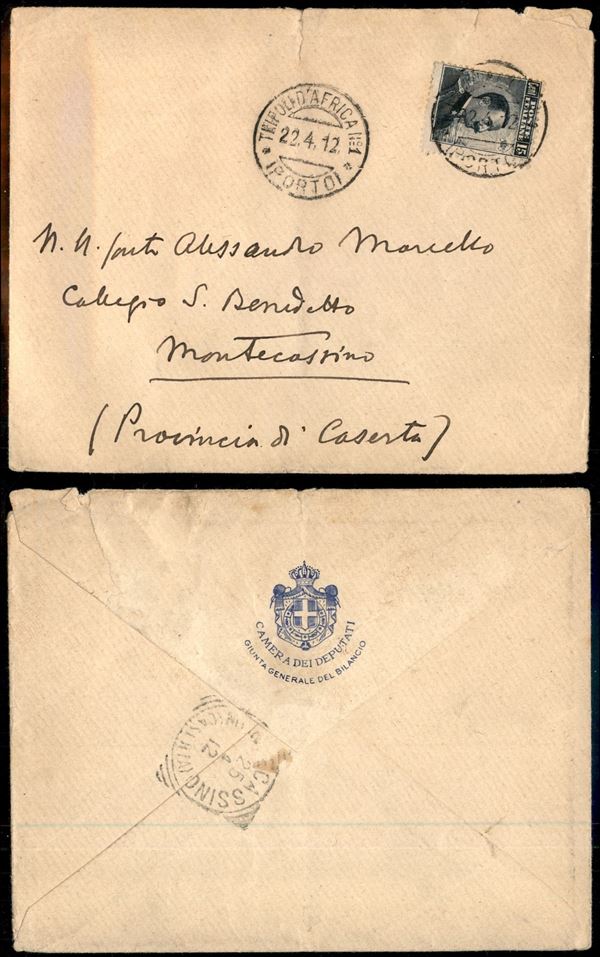 TRIPOLI D'AFRICA N.° 1
22.4.12
(PORTO)
15
N. H. Conte Alessandro Marcello
Collegio S. Benedetto
Montecassino
(Provincia di Caserta)
CAMERA DEI DEPUTATI
GIUNTA GENERALE DEL BILANCIO
CASSINO
(CASERTA)
25
4
12